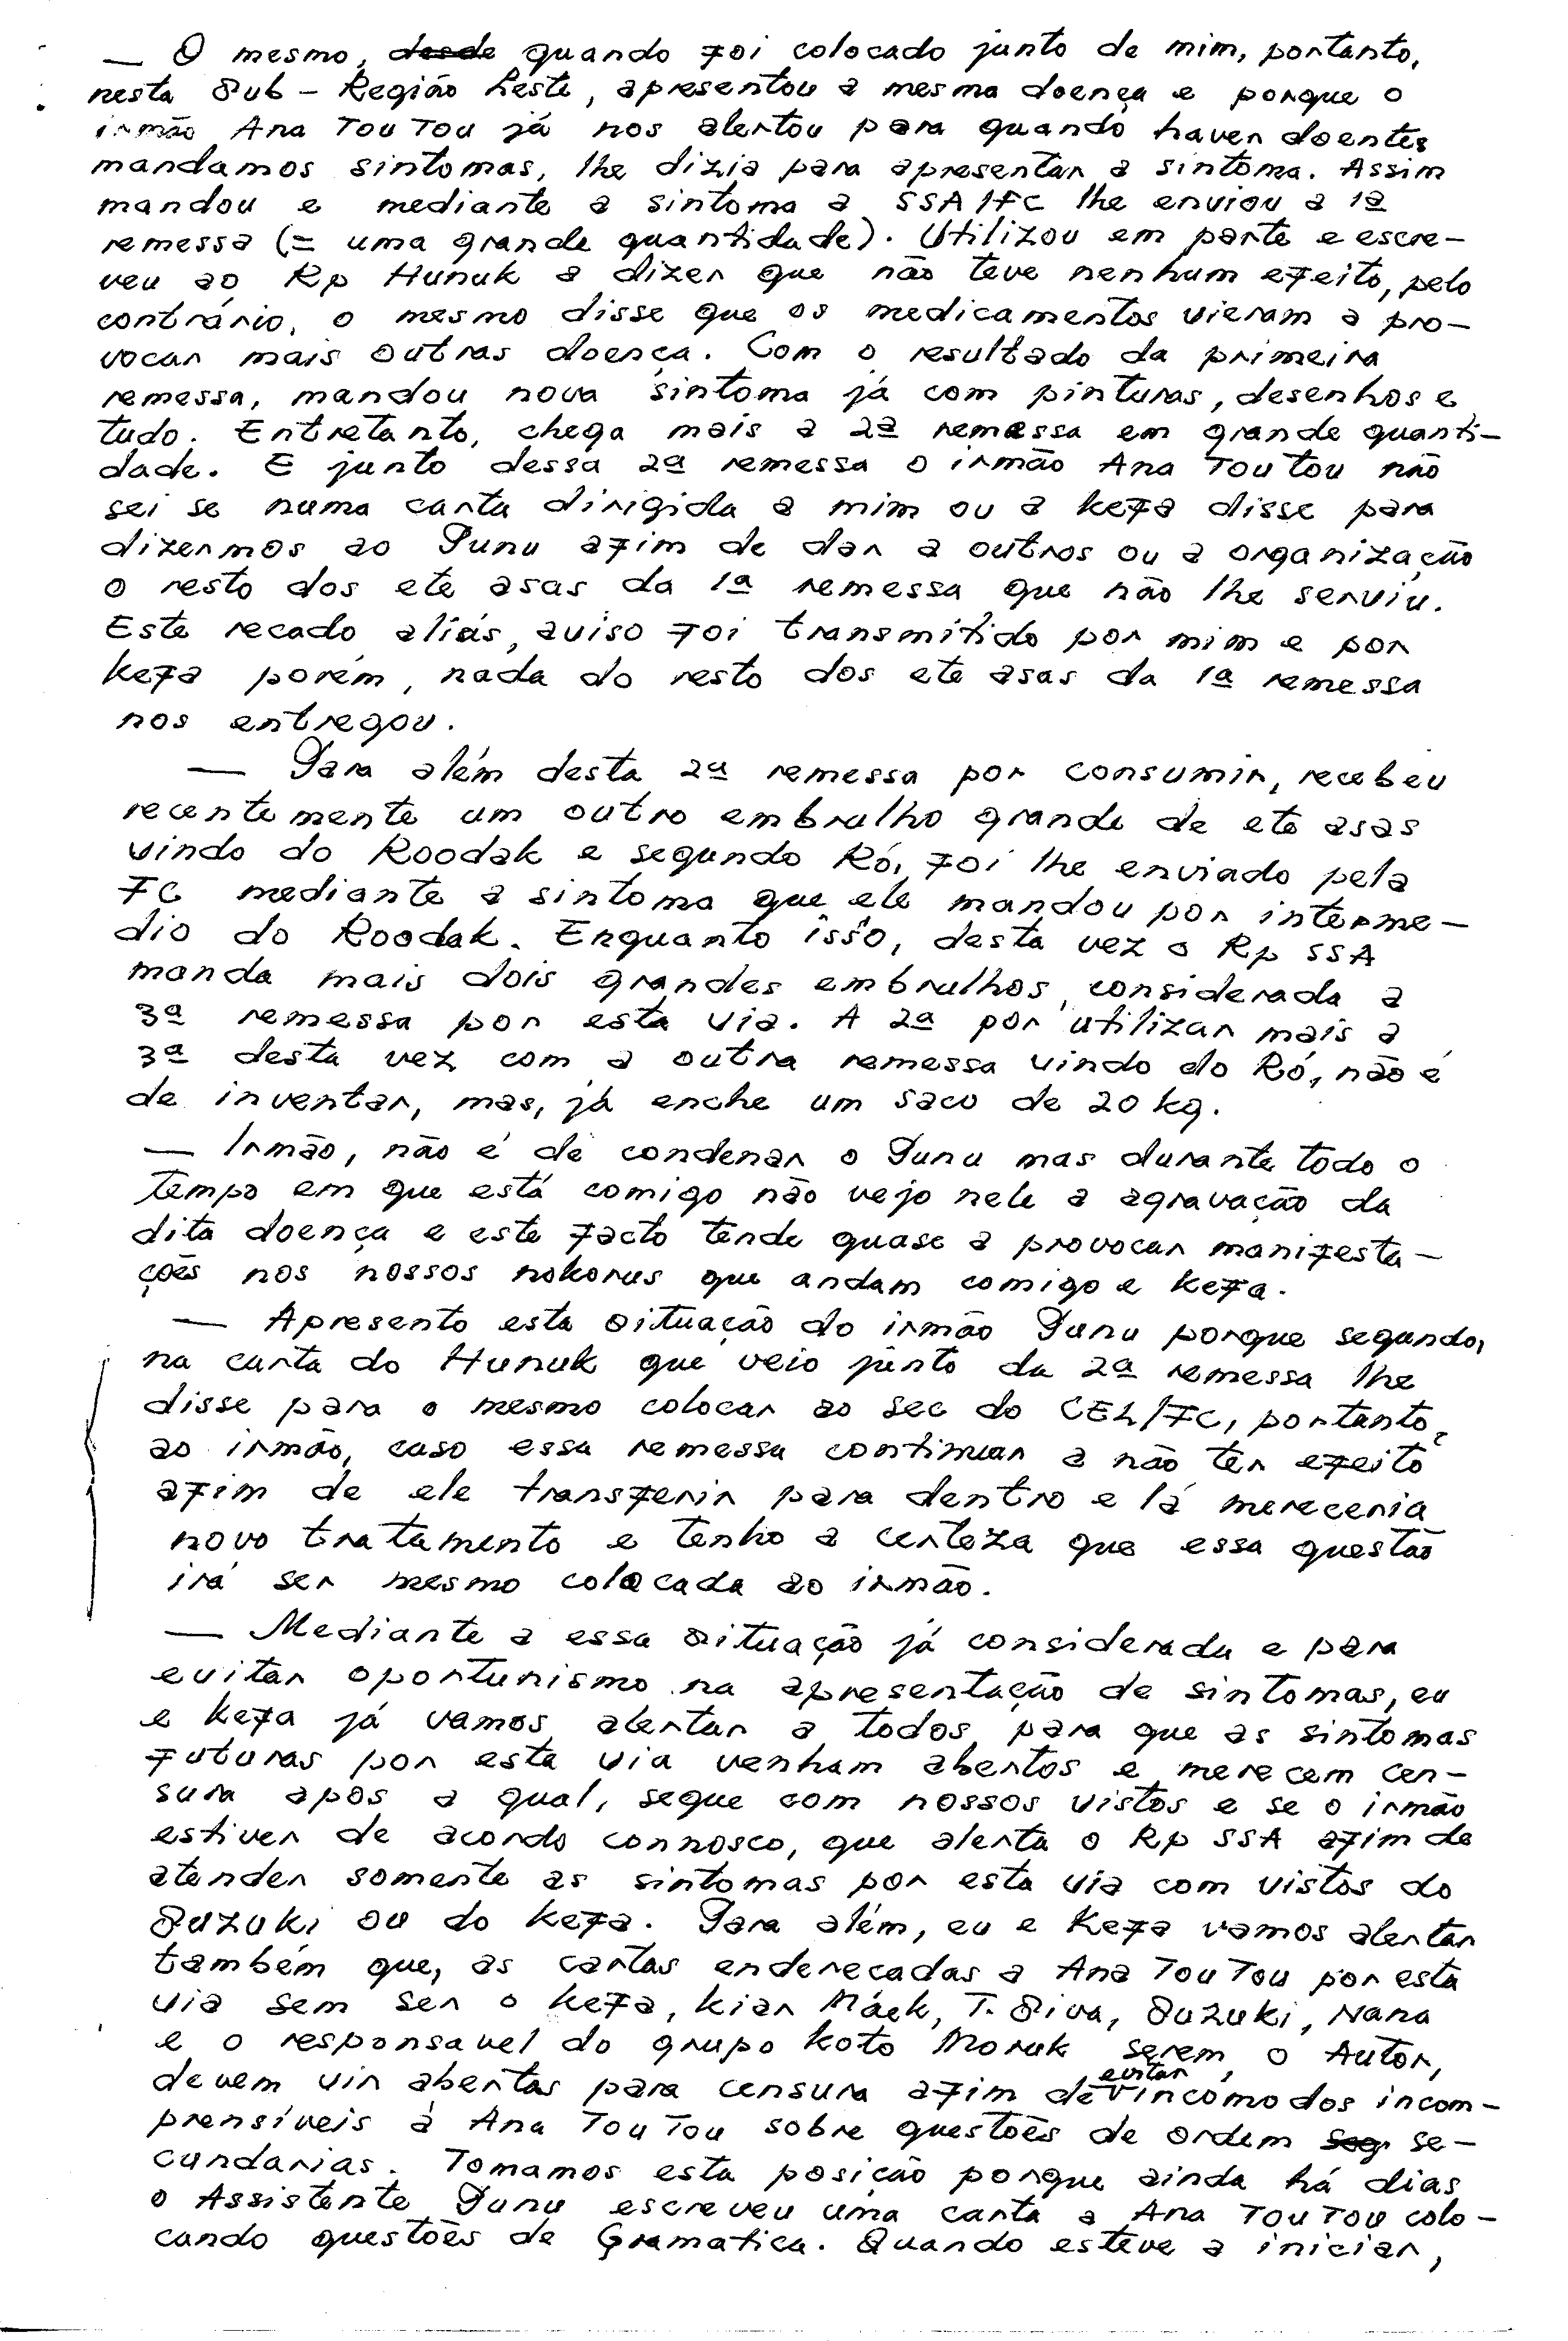 — O mesmo, desde quando foi colocado junto de mim, portanto,
nesta Sub-Região Leste, apresentou a mesma doença e porque o
irmão Ana Tou Tou já nos alertou para quando haver doentes
mandamos sintomas, lhe dizia para apresentar a sintoma. Assim
mandou e mediante a sintoma a SSA/FC lhe enviou a 1ª
remessa (= uma grande quantidade). Utilizou em parte e escre-
veu ao Rp Hunuk a dizer que não teve nenhum efeito, pelo
contrário, o mesmo disse que os medicamentos vieram a pro-
vocar mais outras doença. Com o resultado da primeira
remessa, mandou nova sintoma já com pinturas, desenhos e
tudo. Entretanto, chega mais a 2ª remessa em grande quanti-
dade. E junto dessa 2ª remessa o irmão Ana Tou Tou não
sei se numa carta dirigida a mim ou a Kefa disse para
dizermos ao Punu afim de dar a outros ou a organização
o resto dos ete asas da 1ª remessa que não lhe serviu.
Este recado aliás, aviso foi transmitido por mim e por
Kefa porém, nada do resto dos ete asas da 1ª remessa
nos entregou.
— Para além desta 2ª remessa por consumir, recebeu
recentemente um outro embrulho grande de ete asas
vindo do Roodak e segundo Ró, foi lhe enviado pela
FC mediante a sintoma que ele mandou por interme-
dio do Roodak. Enquanto isso, desta vez o Rp SSA
manda mais dois grandes embrulhos, considerada a
3ª remessa por esta via. A 2ª por utilizar mais a
3ª desta vez com a outra remessa vindo do Ró, não é
de inventar, mas, já enche um saco de 20 kg.
— Irmão, não é de condenar o Punu mas durante todo o
tempo em que está comigo não vejo nele a agravação da
dita doença e este facto tende quase a provocar manifesta-
ções nos nossos nokorus que andam comigo e Kefa.
— Apresento esta situação do irmão Punu porque segundo,
na carta do Hunuk que veio junto da 2ª remessa lhe
disse para o mesmo colocar ao sec do CEL/FC, portanto,
ao irmão, caso essa remessa continuar a não ter efeito
afim de ele transferir para dentro e lá mereceria
novo tratamento e tenho a certeza que essa questão
irá ser mesmo colocada ao irmão.
— Mediante a essa situação já considerada e para
evitar oportunismo na apresentação de sintomas, eu
e Kefa já vamos alertar a todos para que as sintomas
futuras por esta via venham abertos e merecem cen-
sura após a qual, segue com nossos vistos e se o irmão
estiver de acordo connosco, que alerta o Rp SSA afim de
atender somente as sintomas por esta via com vistos do
Suzuki ou do Kefa. Para além, eu e Kefa vamos alertar
também que, as cartas enderecadas a Ana Tou Tou por esta
via sem ser o Kefa, Kiar Máek, T. Siva, Suzuki, Nana
e o responsavel do grupo Koto Moruk serem o Autor,
devem vir abertas para censura afim de evitar incomodos incom-
prensíveis à Ana Tou Tou sobre questões de ordem seg. se-
cundarias. Tomamos esta posição porque ainda há dias
o Assistente Punu escreveu uma carta a Ana Tou Tou colo-
cando questões de Gramatica. Quando esteve a iniciar,